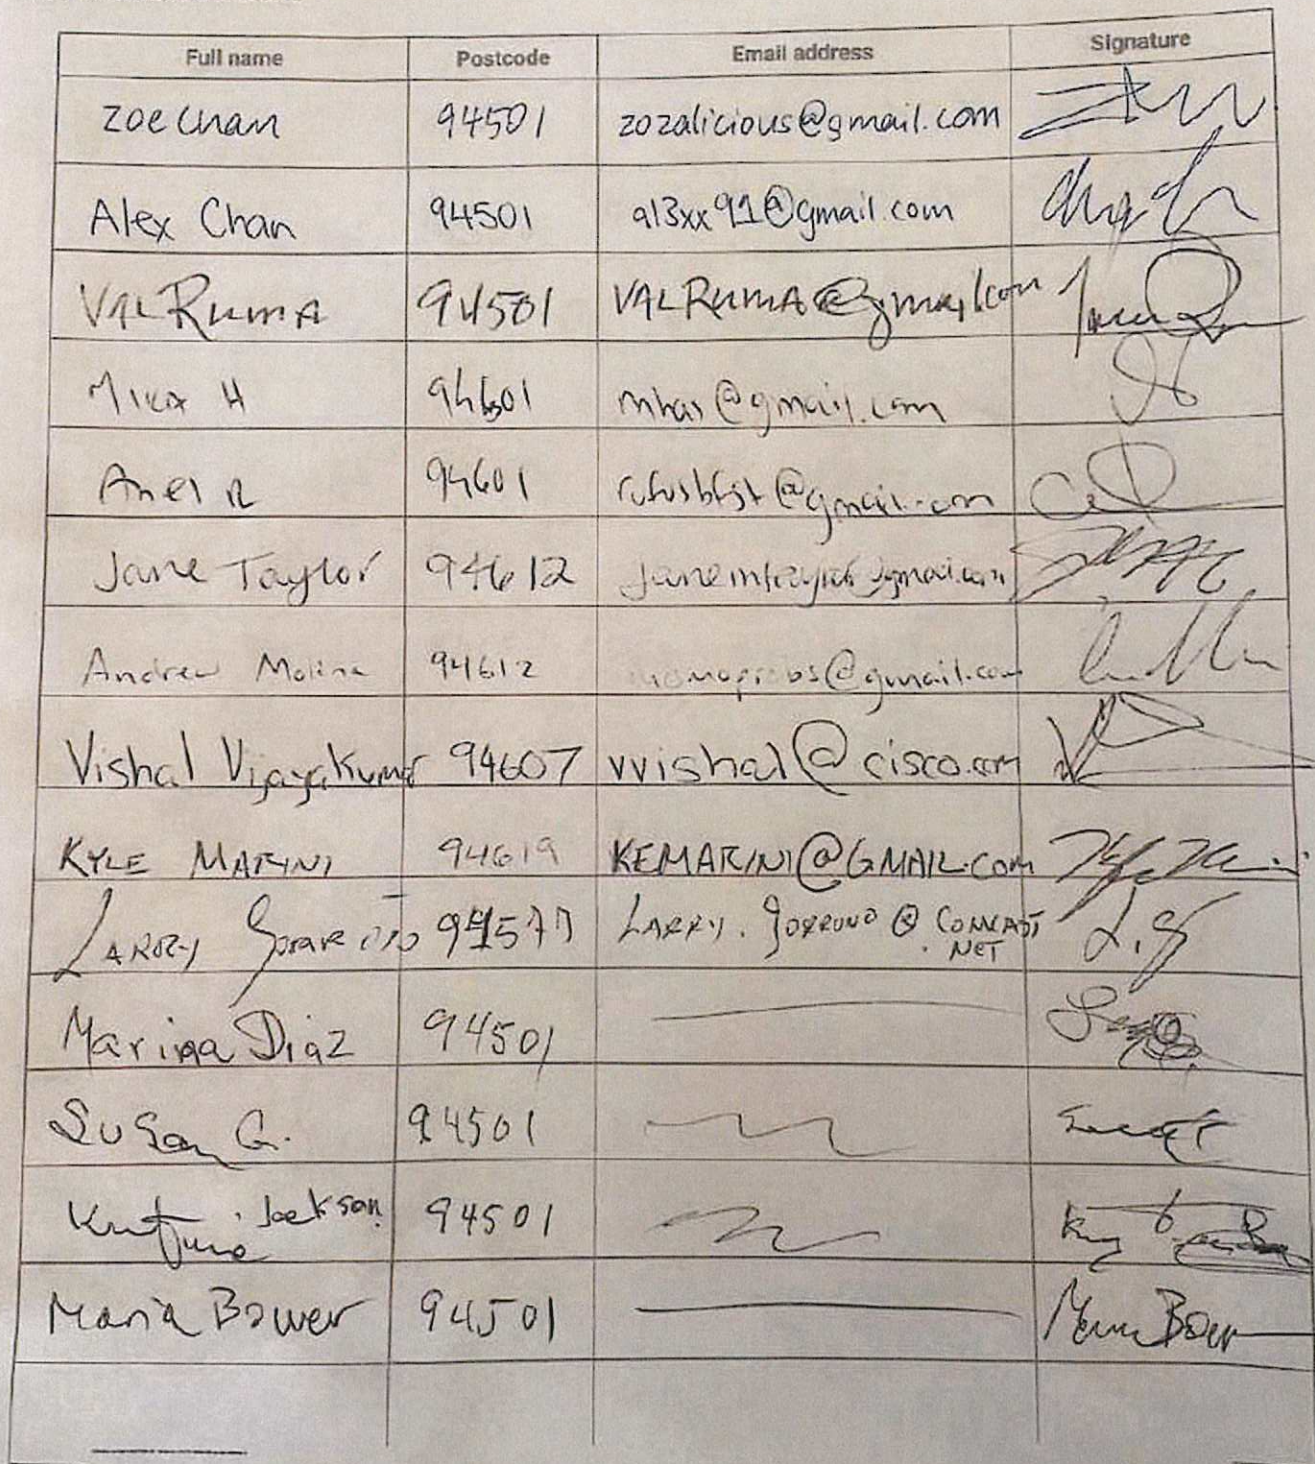 Full name Postcode Email address Signature
Zoe Chan 94501 zozalicious@gmail.com
Alex Chan 94501 al3xx91@gmail.com
VAL RUMA 94501 VALRUMA@gmail.com
Mika H 94601 mhas@gmail.com
94601 @gmail.com
Jane Taylor 94612
Andrew Molina 94612
Vishal Vijayakumar 94607 vvishal@cisco.com
KYLE MARINI 94619 KEMARINI@GMAIL.COM
LARRY 94577 LARRY.
NET
Marina Diaz 94501
Susan G. 94501
Jackson 94501
Maria Bower 94501